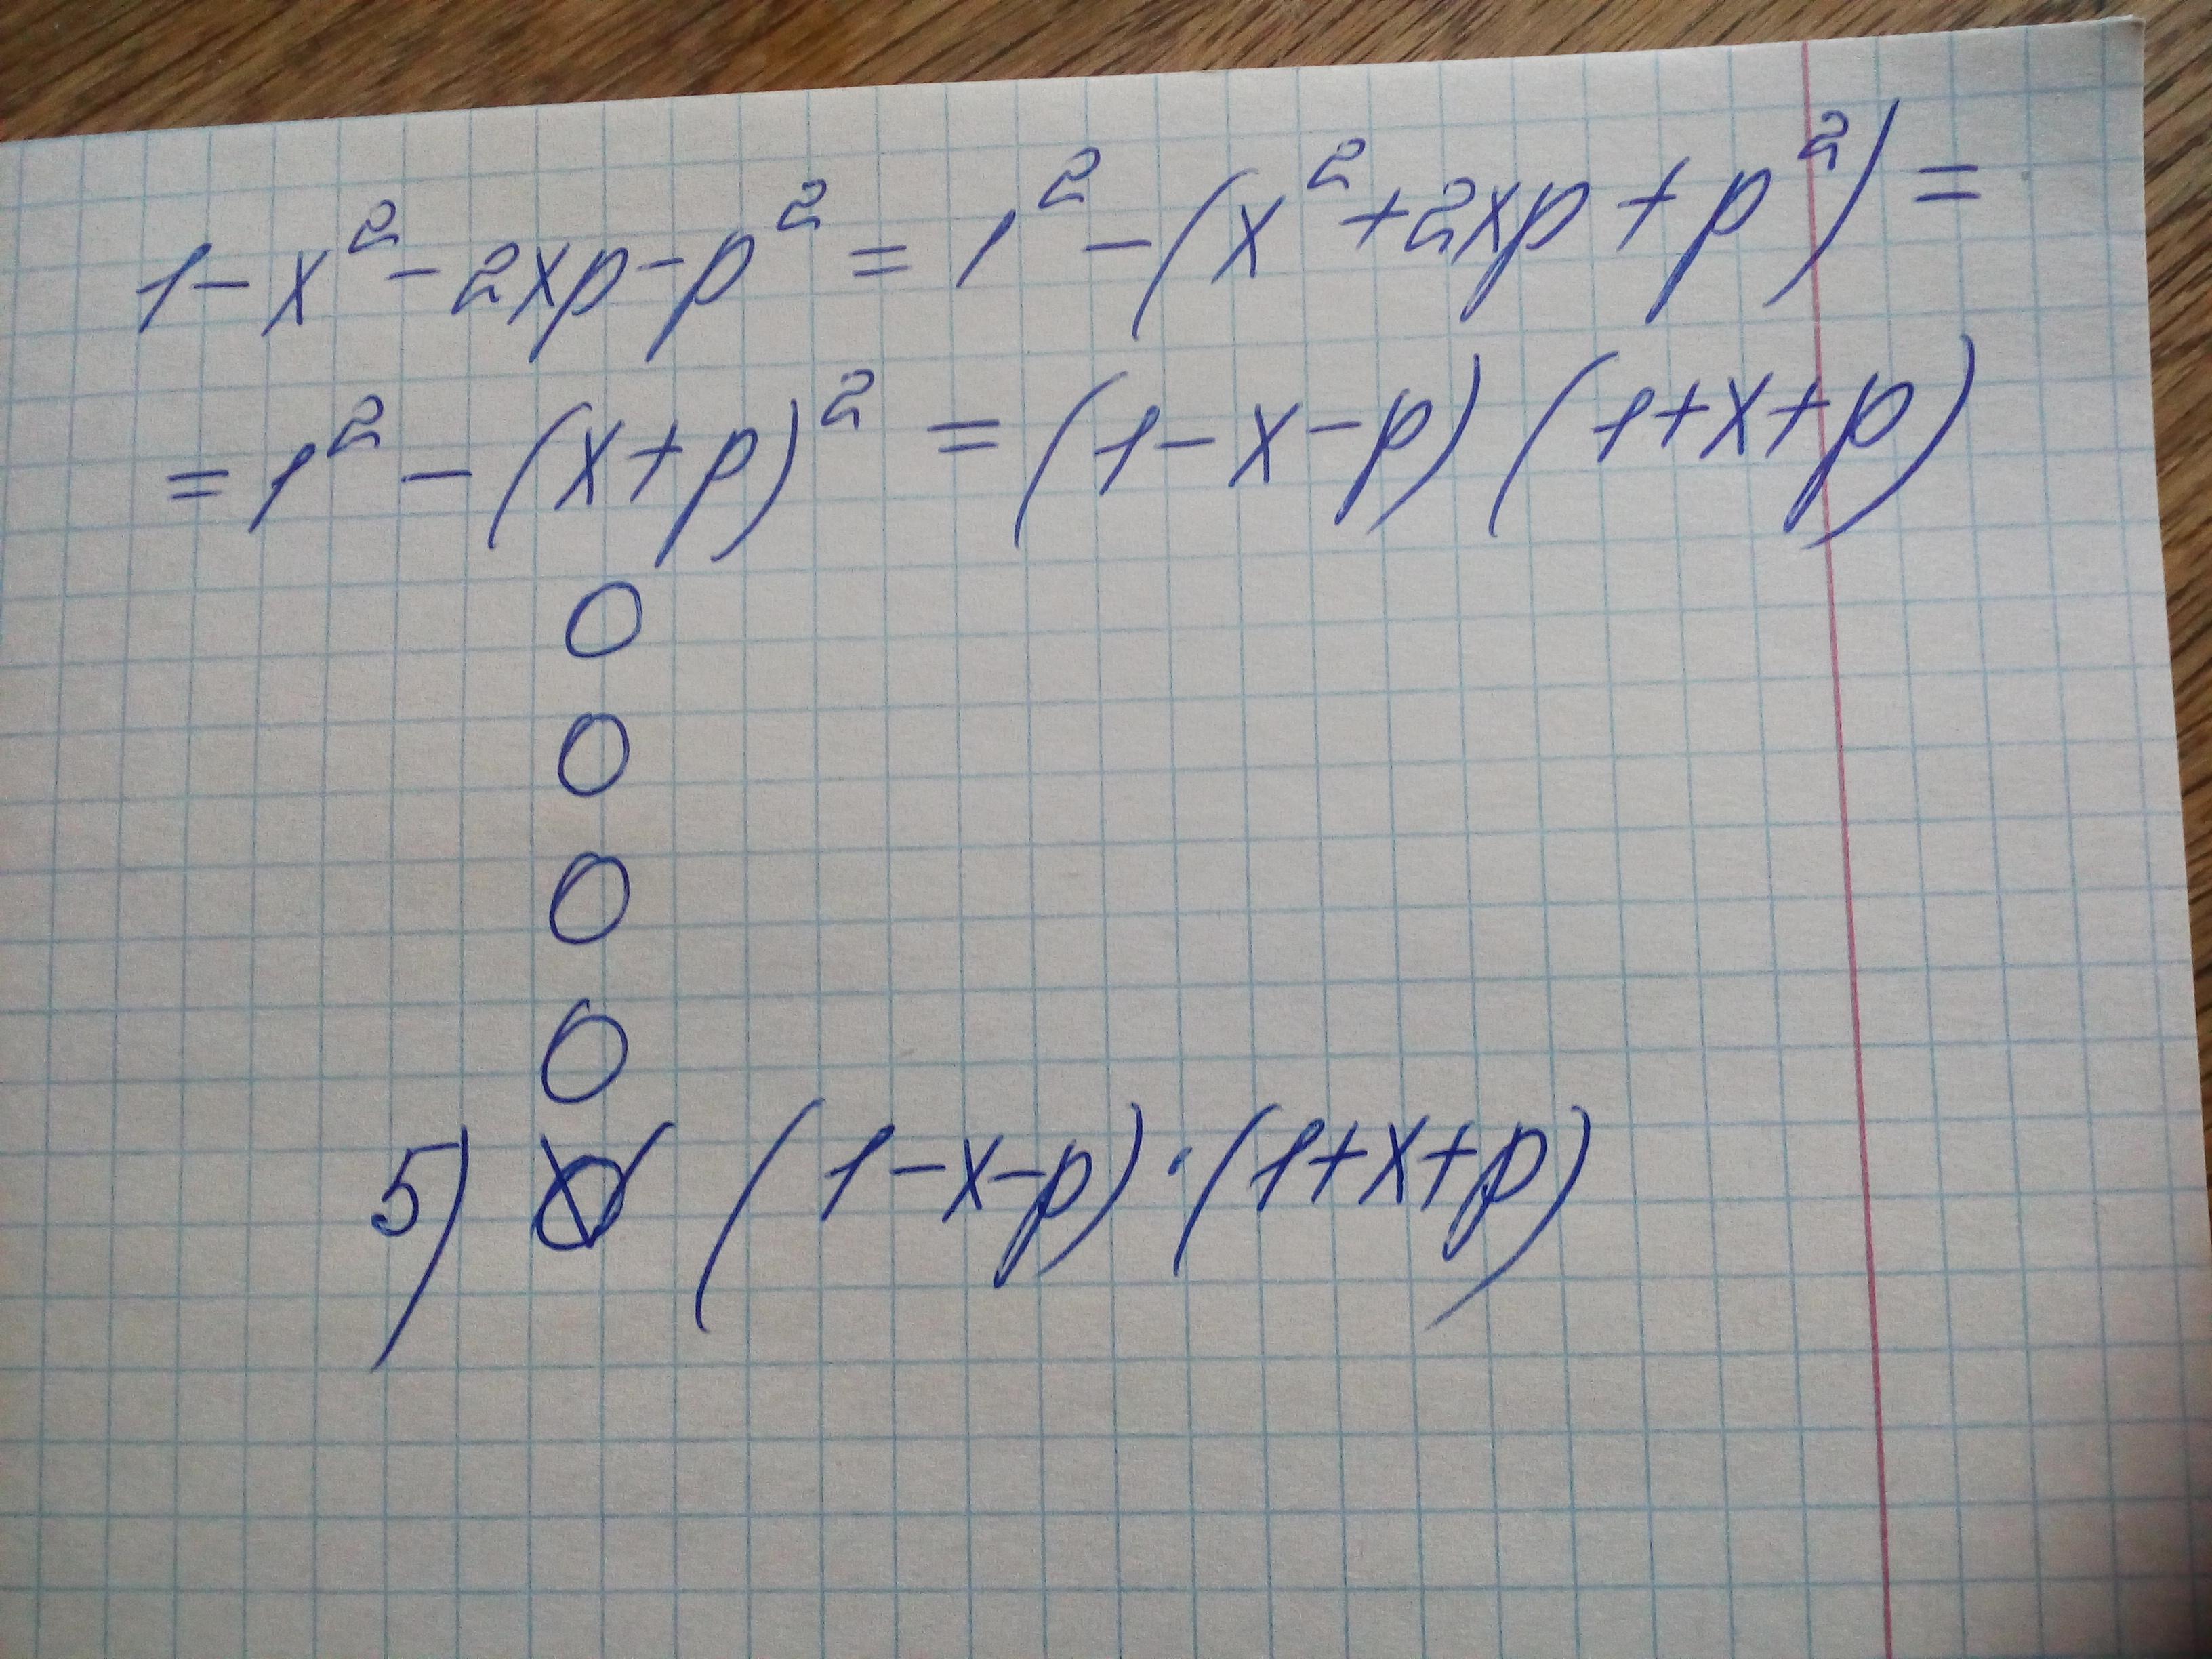 1-x²-2xp-p²=1²-(x²+2xp+p²)=
=1²-(x+p)²=(1-x-p)(1+x+p)
O
O
O
O
5) (1-x-p)·(1+x+p)